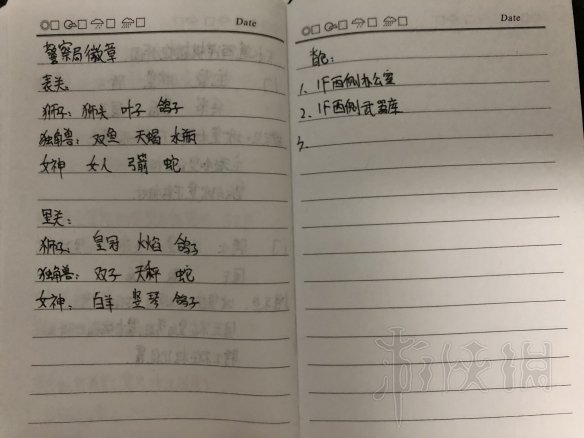 Date
警察局徽章
表关:
狮子: 狮头 叶子 鸽子
独角兽: 双鱼 天蝎 水瓶
女神 女人 弓箭 蛇
里关:
狮子: 皇冠 火焰 鸽子
独角兽: 双子 天秤 蛇
女神: 白羊 竖琴 鸽子
Date
背包:
1. 1F西侧办公室
2. 1F西侧武器库
3.
游侠网